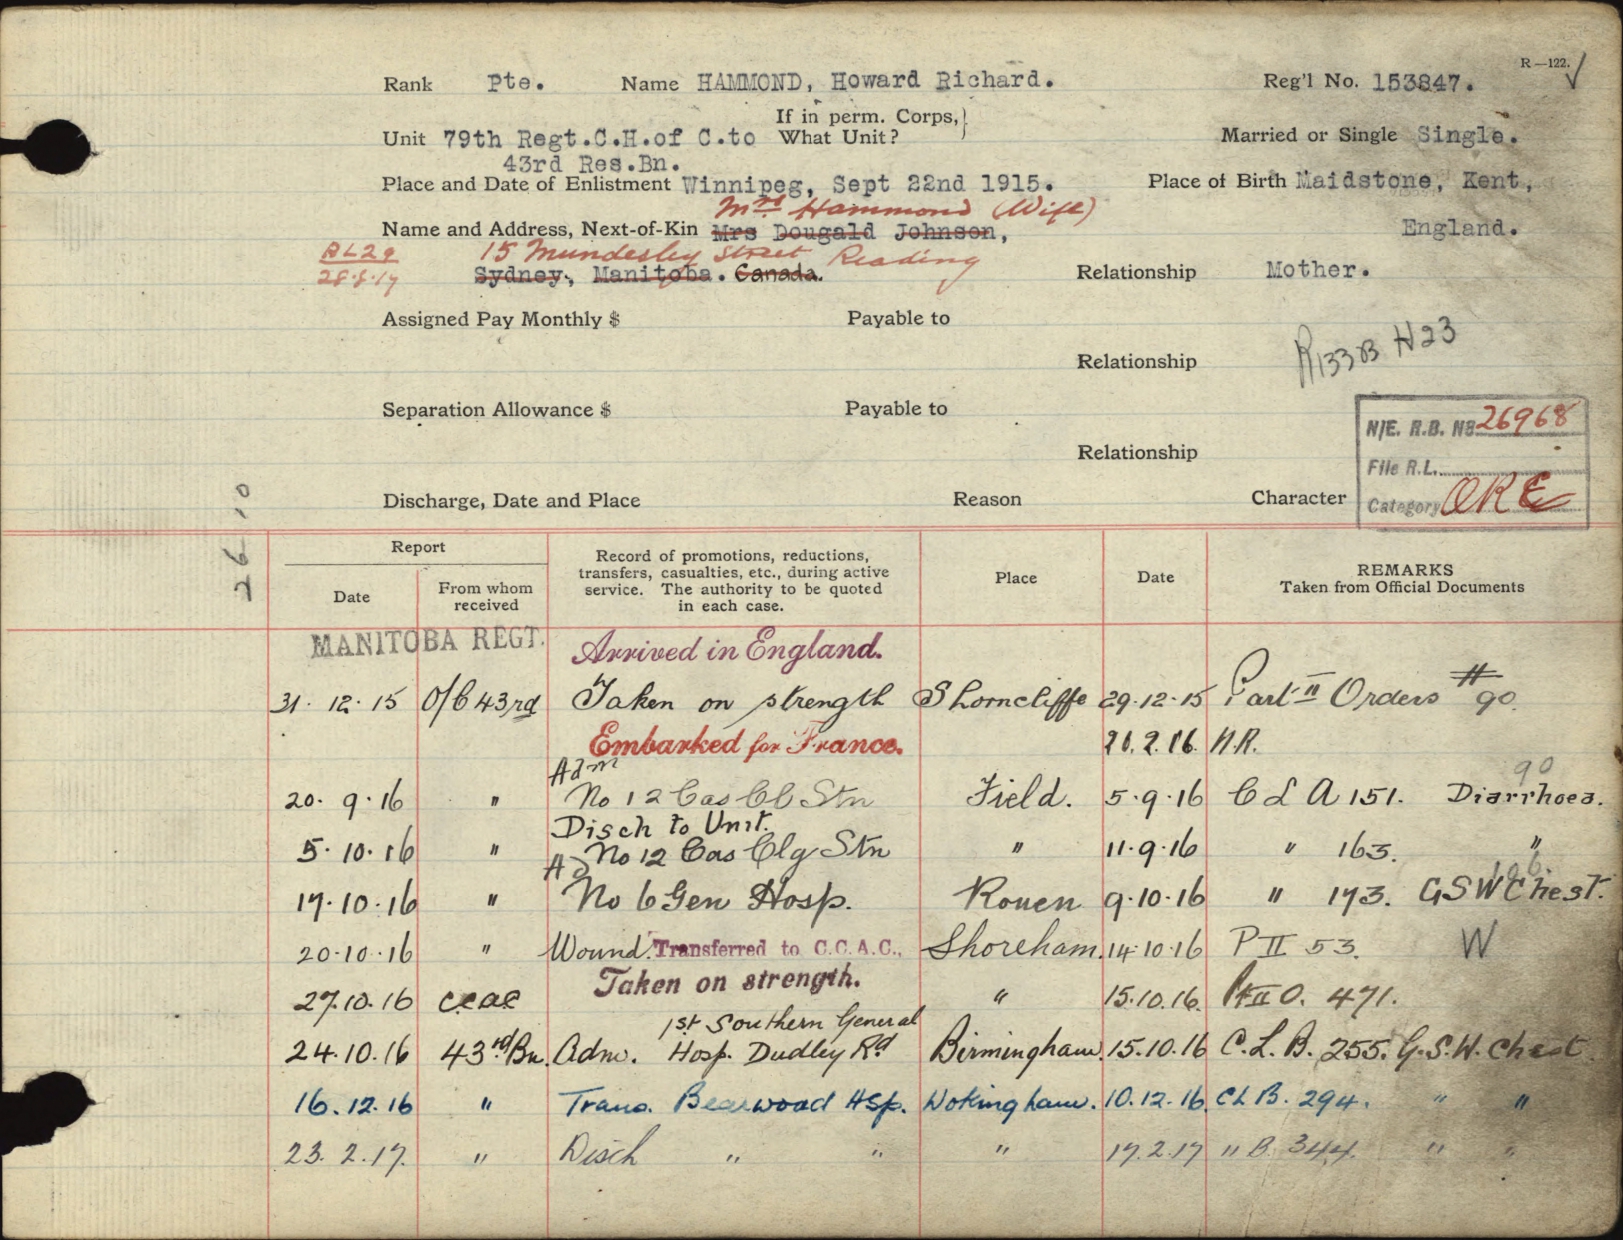 R—122. ✓
Rank Pte. Name HAMMOND, Howard Richard. Reg'l No. 153847.
If in perm. Corps,}
Unit 79th Regt.C.H.of C.to What Unit? Married or Single Single.
43rd Res.Bn.
Place and Date of Enlistment Winnipeg, Sept 22nd 1915. Place of Birth Maidstone, Kent,
Mrs Hammond (Wife)
Name and Address, Next-of-Kin Mrs Dougald Johnson, England.
RL29 15 Mundesley Street Reading
28·8·19 Sydney, Manitoba. Canada. Relationship Mother.
Assigned Pay Monthly $ Payable to
R133B H23
Relationship
Separation Allowance $ Payable to
N/E. R.B. No 26968
Relationship
File R.L.
Category ORE
Discharge, Date and Place Reason Character
26-10
Report
Date
From whom
received
Record of promotions, reductions,
transfers, casualties, etc., during active
service. The authority to be quoted
in each case.
Place
Date
REMARKS
Taken from Official Documents
MANITOBA REGT. Arrived in England.
31·12·15 O/C 43rd Taken on strength Shorncliffe 29·12·15 Part II Orders # 90.
Embarked for France. 20.2.16. N.R.
Adm 90
20·9·16 " No 12 Cas Cl Stn Field. 5·9·16 C L A 151. Diarrhoea.
Disch to Unit.
5·10·16 " No 12 Cas Clg Stn " 11·9·16 " 163. "
Ad
17·10·16 " No 6 Gen Hosp. Rouen 9·10·16 " 173. GSW Chest.
20·10·16 " Wound. Transferred to C.C.A.C., Shoreham. 14·10·16 P II 53. W
Taken on strength.
27.10.16 ccac " 15.10.16. Pt II O. 471.
1st Southern General
24.10.16 43rd Bn. Adm. Hosp. Dudley Rd Birmingham. 15.10.16 C.L.B. 255. G.S.W. Chest.
16.12.16 " Trans. Bearwood Hsp. Wokingham. 10.12.16 CLB. 294. " "
23.2.17. " Disch " " " 17.2.17 " B. 344. " "